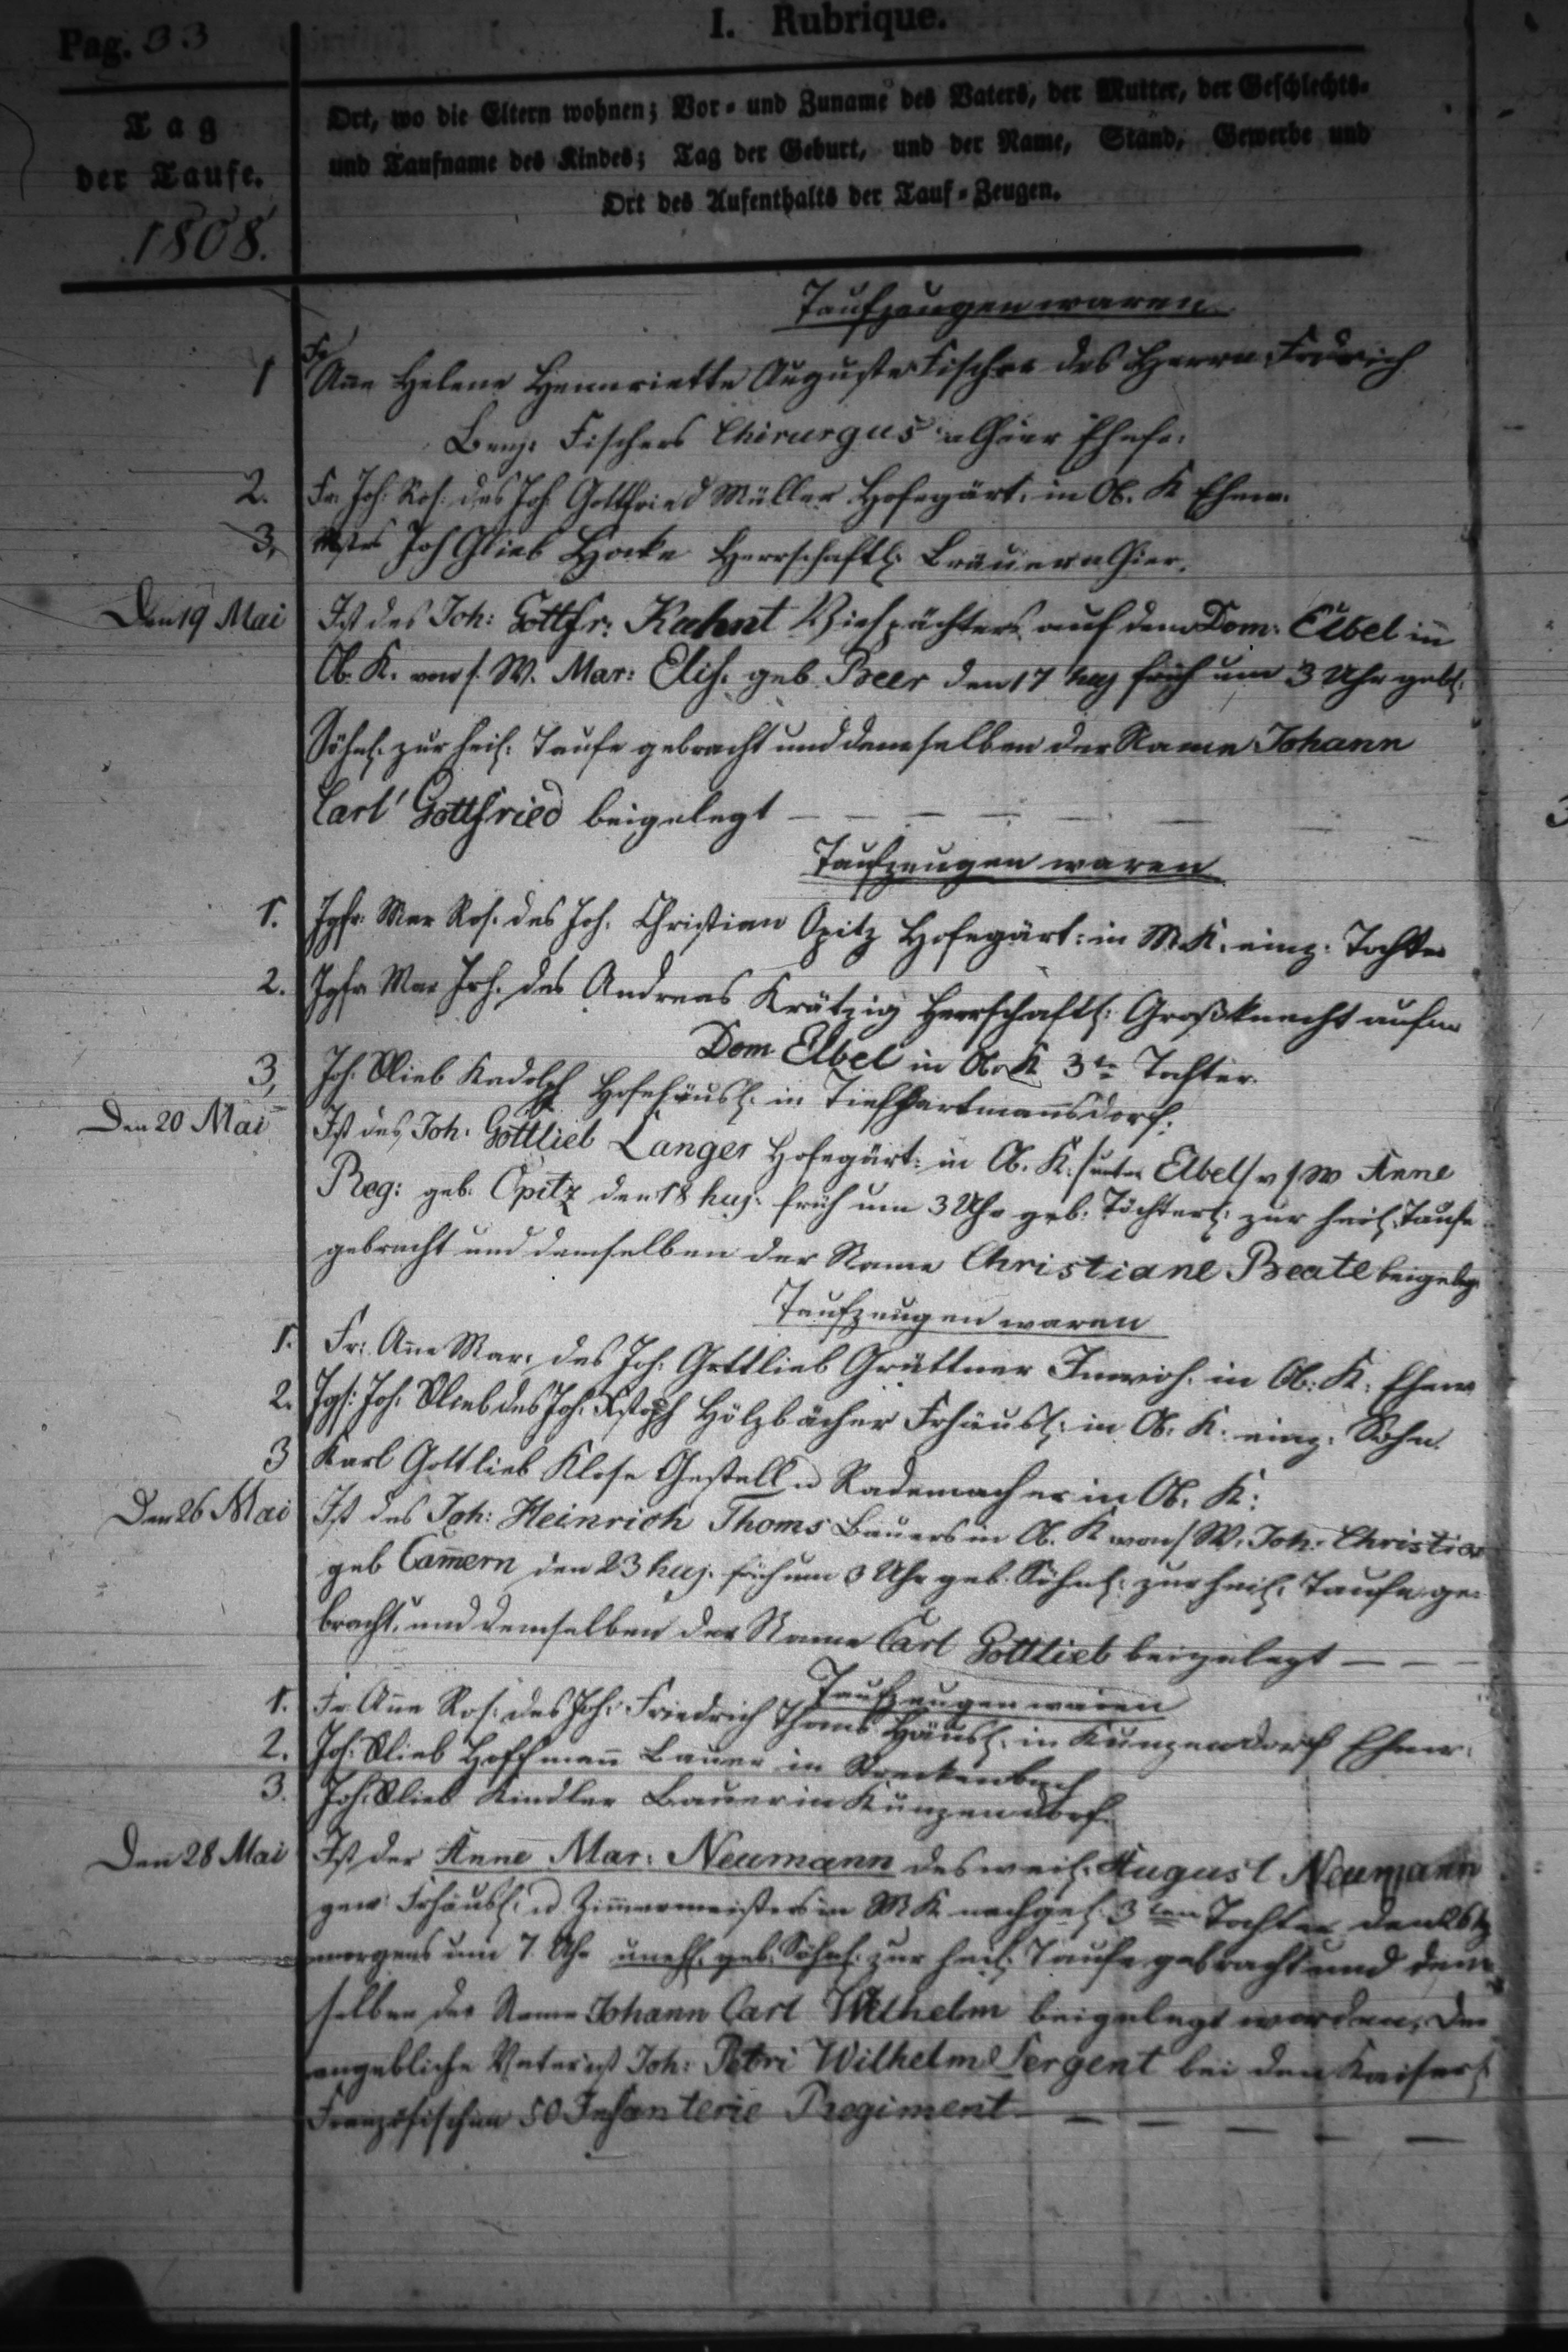 Pag. 33
I. Rubrique.
Tag
der Taufe.
1808.
Ort, wo die Eltern wohnen; Vor- und Zuname des Vaters, der Mutter, der Geschlechts-
und Taufname des Kindes; Tag der Geburt, und der Name, Stand, Gewerbe und
Ort des Aufenthalts der Tauf-Zeugen.
Taufzeugen waren
1 Fr Ann̄e Helene Hennriette Auguste Fischer des Herrn Friedrich
Benj: Fischers Chirurgus allhier Ehefr:
2. Fr. Joh: Ros: des Joh: Gottfried Müller Hofegärt: in Ob. K Ehew.
3, Mstr Joh Glieb Hocke Herrschaftl: Brauer allhier.
Den 19 Mai Ist des Joh: Gottfr: Kahnt Viehpächters auf dem Dom: Elbel in
Ob. K. von s. W. Mar: Elis. geb Beer den 17 huj früh um 3 Uhr geb:
Söhnl. zur heil: Taufe gebracht und demselben der Name Johann
Carl Gottfried beigelegt — — — — — —
Taufzeugen waren
1. Jgfr: Mar Ros. des Joh. Christian Opitz Hofegärt: in M. K. einz. Tochter
2. Jgfr Mar Joh. des Andreas Krätzig Herrschaftl: Großknecht aufm
Dom Elbel in Ob. K 3te Tochter.
3, Joh. Glieb Kadolph Hofehäusl: in Tiefhartman̄sdorf.
Den 20 Mai Ist des Joh: Gottlieb Langer Hofegärt: in Ob. K. /unter Elbel/ v s W Anne
Reg: geb. Opitz den 18 huj. früh um 3 Uhr geb: Töchterl: zur heil. Taufe
gebracht und demselben der Name Christiane Beate beigelegt
Taufzeugen waren
1. Fr: Ann̄e Mar: des Joh: Gottlieb Grüttner Inwoh. in Ob: K: Ehew
2. Jgs: Joh. Glieb des Joh. Xstoph Hölzbächer Frhäusl: in Ob. K. einz. Sohn
3 Karl Gottlieb Klose Gestell u Rademacher in Ob. K:
Den 26 Mai Ist des Joh: Heinrich Thoms Bauers in Ob. K von s W. Joh: Christia
geb Cam̄ern den 23 huj. früh um 3 Uhr geb. Söhnl: zur heil. Taufe ge-
bracht, und demselben der Name Carl Gottlieb beigelegt — — —
Taufzeugen waren
1. Fr Ann̄e Ros: des Joh: Friedrich Thoms Häusl: in Kunzendorf Ehew:
2. Joh: Glieb Hoffman̄ Bauer in Streckenbach
3. Joh: Glieb Kindler Bauer in Kunzendorf.
Den 28 Mai Ist der Anne Mar: Neumann des weil: August Neumann
gew: Frhäusl: u Zim̄ermeisters in M K nachgel: 3ten Tochter
morgens um 7 Uhr unehl. geb: Söhnl: zur heil: Taufe gebracht und dem-
selben der Name Johann Carl Wilhelm beigelegt worden. Der
angebliche Vater ist Joh: Petri Wilhelm Sergent bei den Kaiserl
Französischen 50 Infanterie Regiment — — — — —